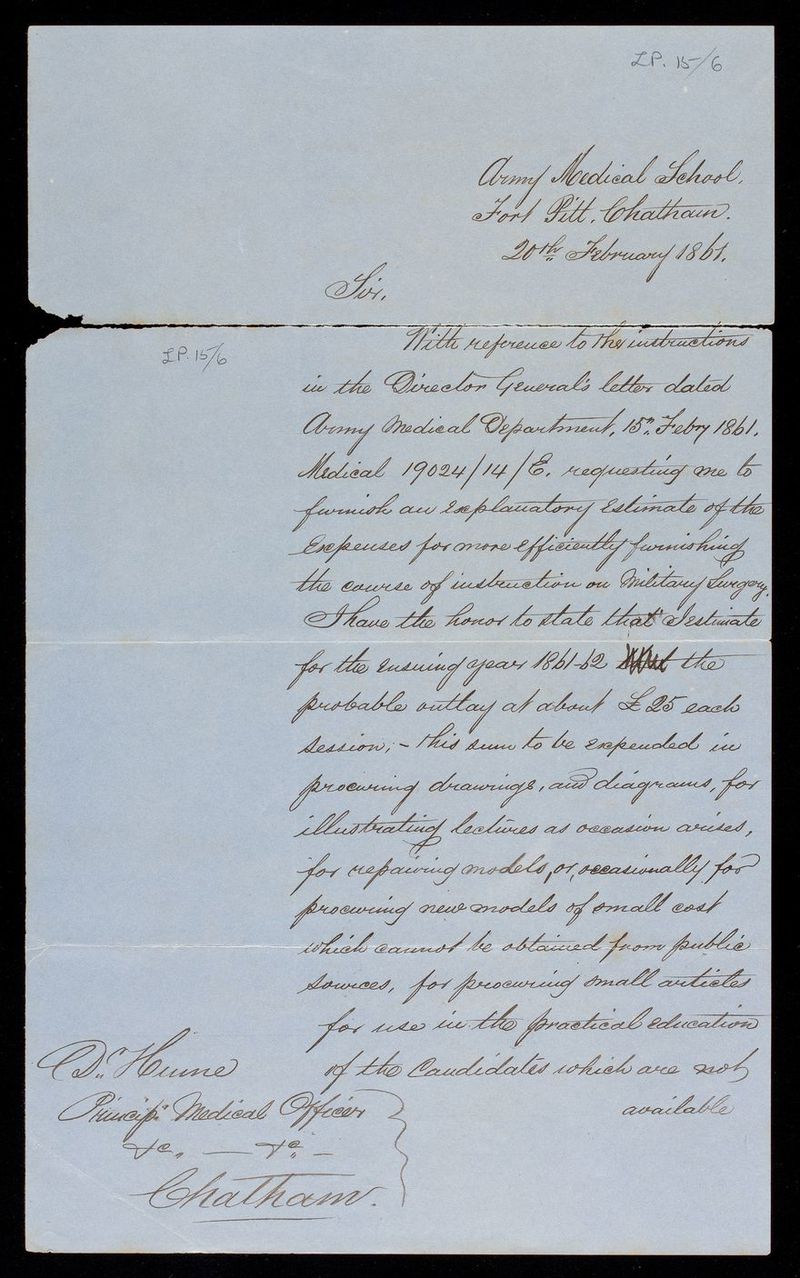 LP. 15/6
Army Medical School.
Fort Pitt. Chatham.
20th February 1861.
Sir,
LP. 15/6
With reference to the instructions
in the Director General's letter dated
Army Medical Department, 15th Febry 1861.
Medical 19024/14/E. requesting me to
furnish an explanatory Estimate of the
Expenses for more efficiently furnishing
the course of instruction on Military Surgery,
I have the honor to state that I estimate
for the ensuing year 1861-62 the
probable outlay at about £25 each
session; - this sum to be expended in
procuring drawings, and diagrams, for
illustrating lectures as occasion arises,
for repairing models, or, occasionally for
procuring new models of small cost
which cannot be obtained from public
sources, for procuring small articles
for use in the practical education
of the Candidates which are not
available
Dr. Hume
Princip. Medical Officer
&c. — &c. —
Chatham.